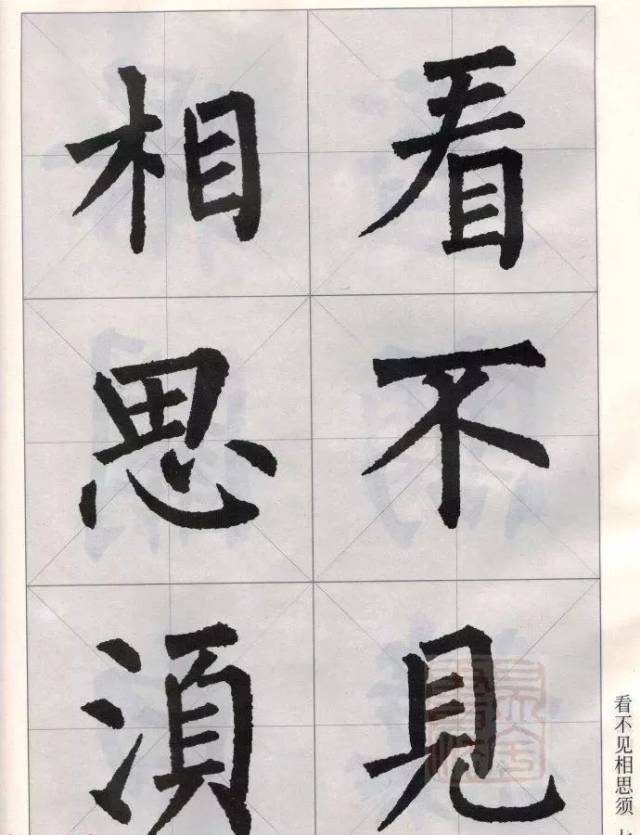 看不見
相思須
看不见相思须